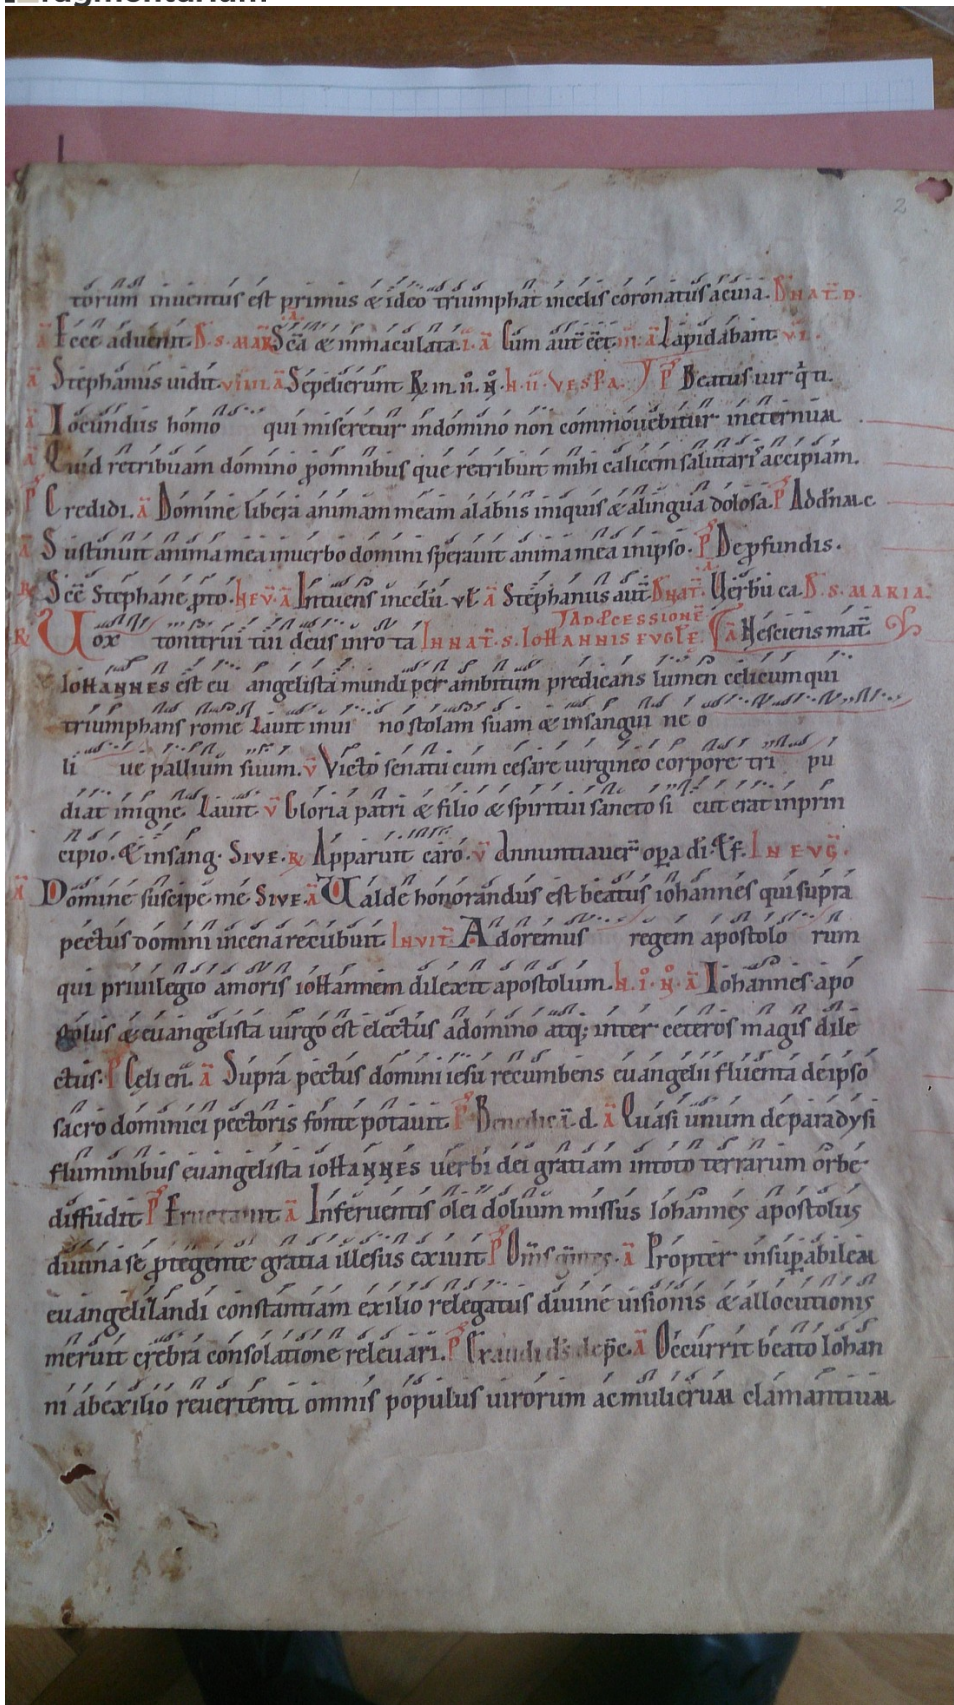 Fragmentarium
2
torum inuentus est primus & ideo triumphat incelis coronatus aeuia. D NAT. D.
ā Ecce aduenit. D. S. MAR. ā Sc̄a & inmaculata. i. ā Cum aut̄ eēt. iii. ā Lapidabant. vi.
ā Stephanus uidit. viiii. ā Sepelierunt. R. in. ii. N. H. ii. VESPA. P Beatus uir q̄ ti.
ā Iocundus homo qui miseretur indomino non commouebitur ineternum
ā Quid retribuam domino p̱omnibus que retribuit mihi calicem salutaris accipiam.
P Credidi. ā Domine libera animam meam alabiis iniquis & alingua dolosa. P Addn̄m c
ā Sustinuit anima mea inuerbo domini sperauit anima mea inipso. P De p̱fundis.
R Scē Stephane p̱to. IN EV. ā Intuens incelū. vł ā Stephanus aut̄. D NAT. Uerbū ca. D. S. MARIA.
AD P̱CESSIONĒ
R Uox tonitrui tui deus inro ta IN NAT. S. IOHANNIS EVGLE. ā Nesciens mat̄
IOHANNES est eu angelista mundi per ambitum predicans lumen celicum qui
triumphans rome Lauit inui no stolam suam & insangui ne o
li ue pallium suum. v Victo senatu cum cesare uirgineo corpore tri pu
diat inigne. Lauit. v Gloria patri & filio & spiritui sancto si cut erat inprin
cipio. & insang. SIVE. R Apparuit caro. v Annuntiauer̄ op̱a di. & f. IN EVḠ.
ā Domine suscipe me SIVE. ā Ualde honorandus est beatus iohannes qui supra
pectus domini incena recubuit. INVIT. Adoremus regem apostolo rum
qui priuilegio amoris iohannem dilexit apostolum. IN. i. N. ā Iohannes apo
stolus & euangelista uirgo est electus adomino atq; inter ceteros magis dile
ctus. P Celi en̄. ā Supra pectus domini iesu recumbens euangelii fluenta deipso
sacro dominici pectoris fonte potauit. P Benedic ā. d. ā Quasi unum de paradysi
fluminibus euangelista iohANNES uerbi dei gratiam intoto terrarum orbe
diffudit. P Eructauit ā Inferuentis olei dolium missus Iohannes apostolus
diuina se p̱tegente gratia illesus exiuit P Om̄s gentes. ā Propter insup̱abilem
euangelilandi constantiam exilio relegatus diuine uisionis & allocutionis
meruit crebra consolatione releuari. P Exaudi ds̄ dep̄c. ā Occurrit beato Iohan
ni abexilio reuertenti omnis populus uirorum ac mulierum clamantium